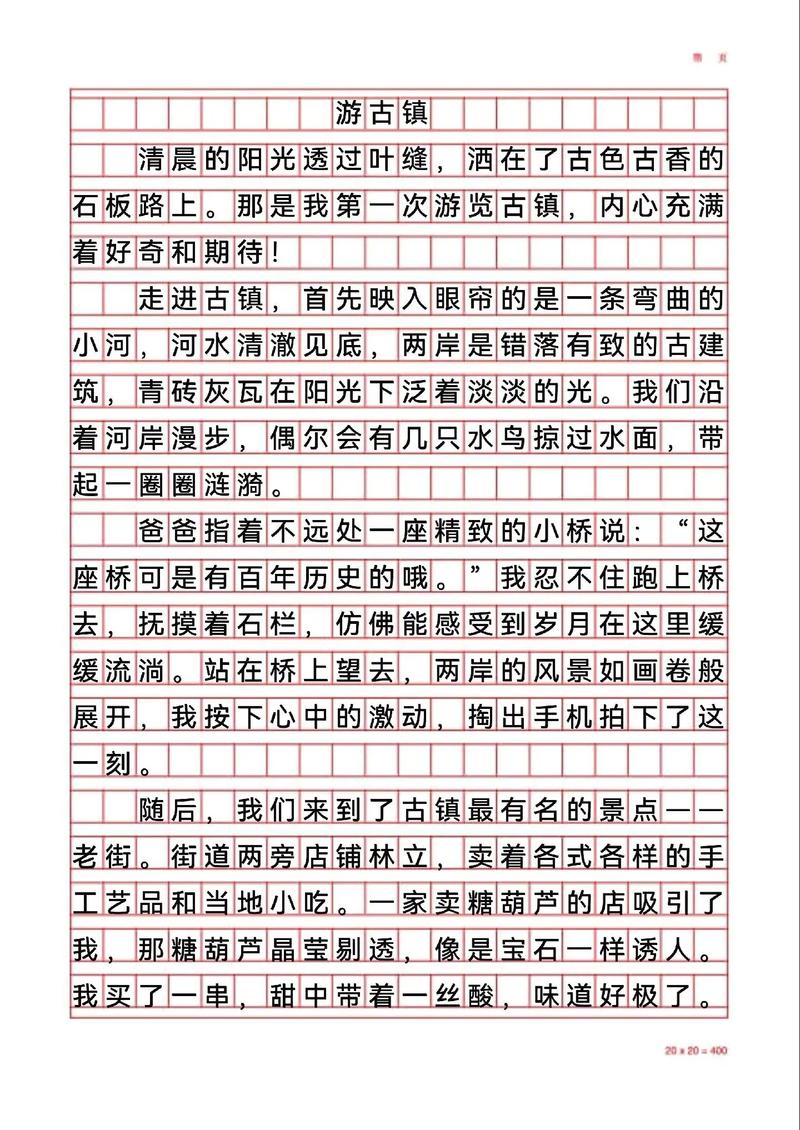 第 页
游古镇
清晨的阳光透过叶缝，洒在了古色古香的
石板路上。那是我第一次游览古镇，内心充满
着好奇和期待！
走进古镇，首先映入眼帘的是一条弯曲的
小河，河水清澈见底，两岸是错落有致的古建
筑，青砖灰瓦在阳光下泛着淡淡的光。我们沿
着河岸漫步，偶尔会有几只水鸟掠过水面，带
起一圈圈涟漪。
爸爸指着不远处一座精致的小桥说：“这
座桥可是有百年历史的哦。”我忍不住跑上桥
去，抚摸着石栏，仿佛能感受到岁月在这里缓
缓流淌。站在桥上望去，两岸的风景如画卷般
展开，我按下心中的激动，掏出手机拍下了这
一刻。
随后，我们来到了古镇最有名的景点——
老街。街道两旁店铺林立，卖着各式各样的手
工艺品和当地小吃。一家卖糖葫芦的店吸引了
我，那糖葫芦晶莹剔透，像是宝石一样诱人。
我买了一串，甜中带着一丝酸，味道好极了。
20 x 20 = 400